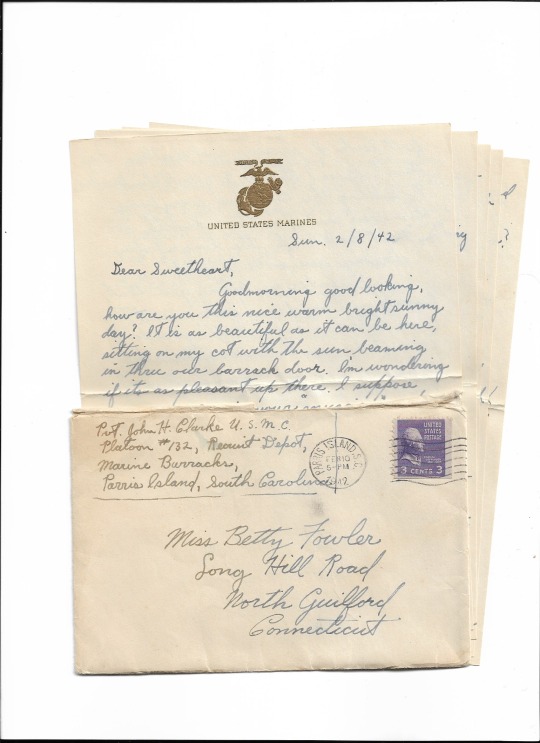 UNITED STATES MARINES
Sun. 2/8/42
Dear Sweetheart,
Goodmorning good looking,
how are you this nice warm bright sunny
day? It is as beautiful as it can be here,
sitting on my cot with the sun beaming
in thru our barrack door. I'm wondering
if its as pleasant up there. I suppose,
Pvt. John H. Clarke U.S.M.C.
Platoon #132, Recruit Depot,
Marine Barracks,
Parris Island, South Carolina
PARRIS ISLAND, S.C.
FEB 10
5-PM
1942
UNITED
STATES
POSTAGE
3 CENTS 3
Miss Betty Fowler
Long Hill Road
North Guilford
Connecticut